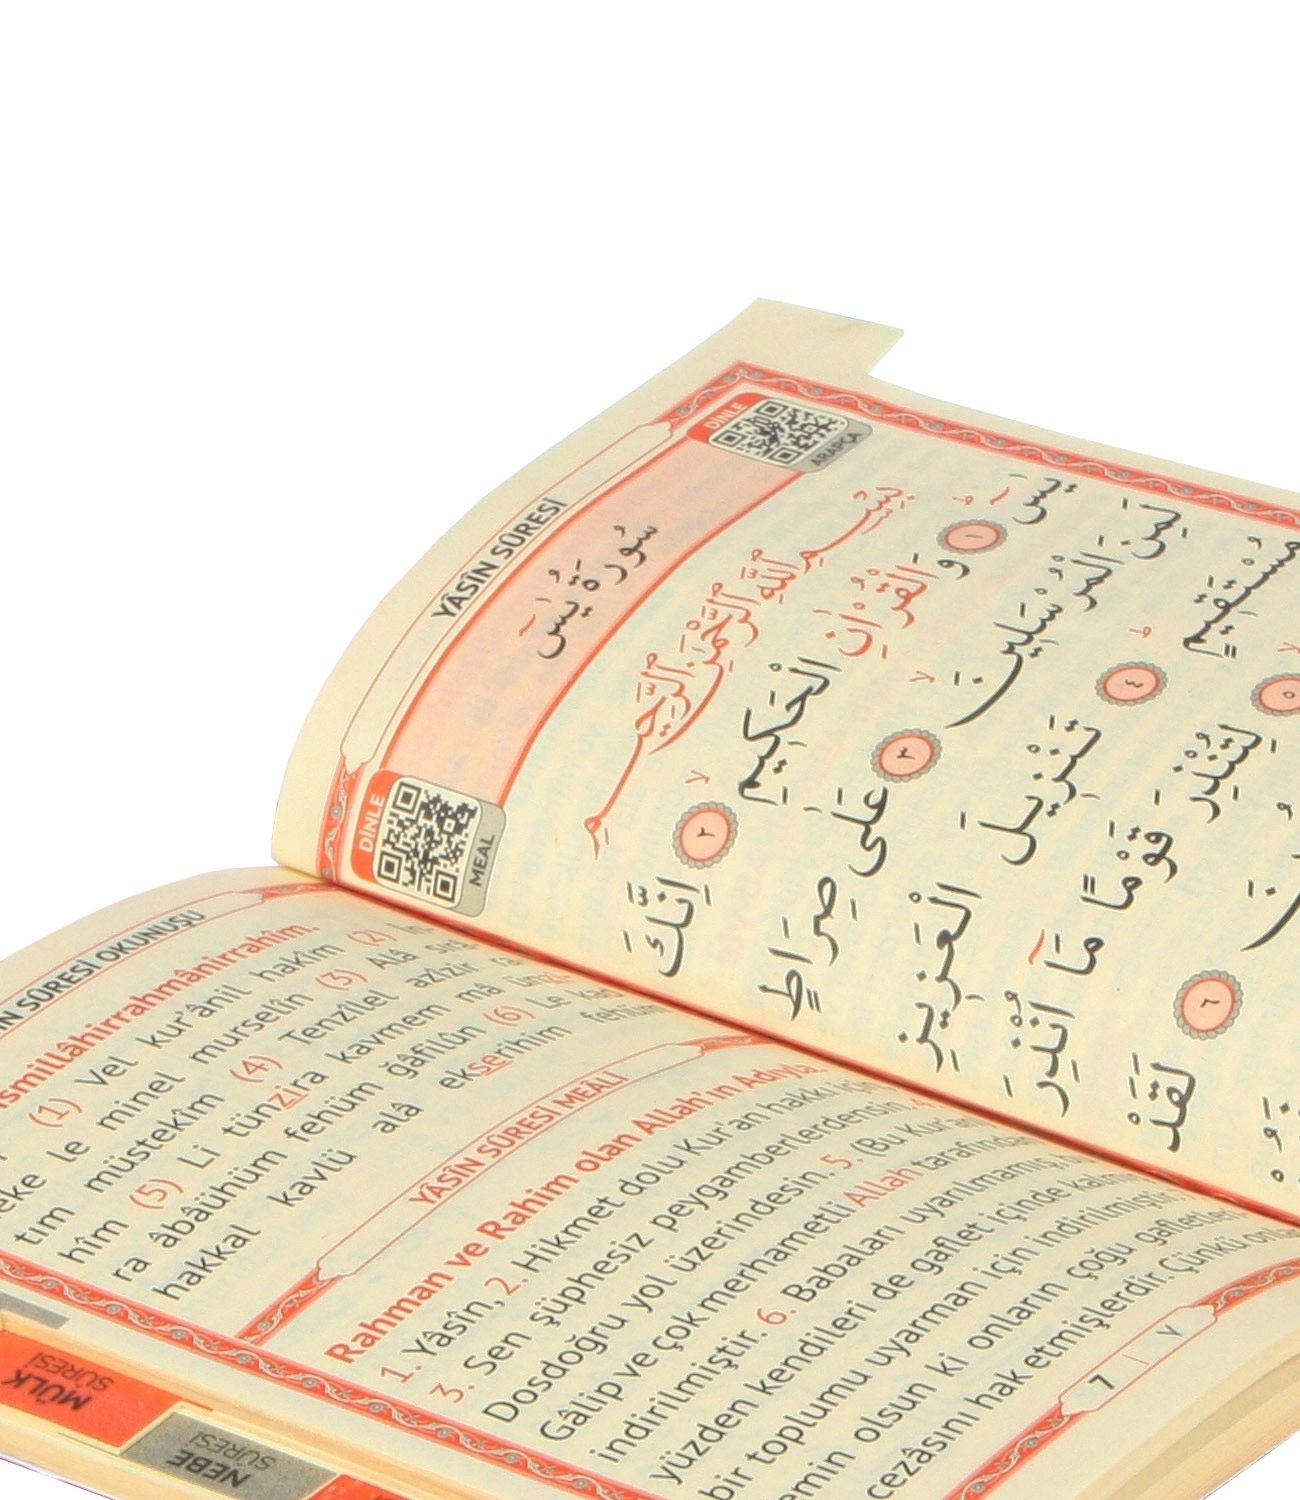 YÂSÎN SÛRESİ
DİNLE
ARAPÇA
سُورَةُ يٰسٓ
DİNLE
MEAL
بِسْمِ اللّٰهِ الرَّحْمٰنِ الرَّحٖيمِ
يٰسٓ ۚ ﴿١﴾ وَالْقُرْاٰنِ الْحَكٖيمِ ۙ ﴿٢﴾ اِنَّكَ
لَمِنَ الْمُرْسَلٖينَ ۙ ﴿٣﴾ عَلٰى صِرَاطٍ
مُسْتَقٖيمٍ ؕ ﴿٤﴾ تَنْزٖيلَ الْعَزٖيزِ
﴿٥﴾ لِتُنْذِرَ قَوْمًا مَٓا اُنْذِرَ
﴿٦﴾ لَقَدْ
SÛRESİ OKUNUŞU
(1) Vel kur'ânil hakîm (2) İn-
neke le minel murselîn (3) Alâ sırâ-
tim müstekîm (4) Tenzîlel azîzir ra
hîm (5) Li tünzira kavmem mâ ünzi
ra âbâühüm fehüm ğâfilûn (6) Le kad
hakkal kavlü alâ ekserihim fehüm
YÂSÎN SÛRESİ MEÂLİ
Rahman ve Rahim olan Allah'ın Adıyla.
1. Yâsîn, 2. Hikmet dolu Kur'an hakkı için
3. Sen şüphesiz peygamberlerdensin.
Dosdoğru yol üzerindesin. 5. (Bu Kur'an)
Gâlip ve çok merhametli Allah tarafından
indirilmiştir. 6. Babaları uyarılmamış, bu
yüzden kendileri de gaflet içinde kalmış
bir toplumu uyarman için indirilmiştir.
emin olsun ki onların çoğu gafletleri
cezâsını hak etmişlerdir. Çünkü onlar
7 | ٧
MÜLK
SÛRESİ
NEBE
SÛRESİ